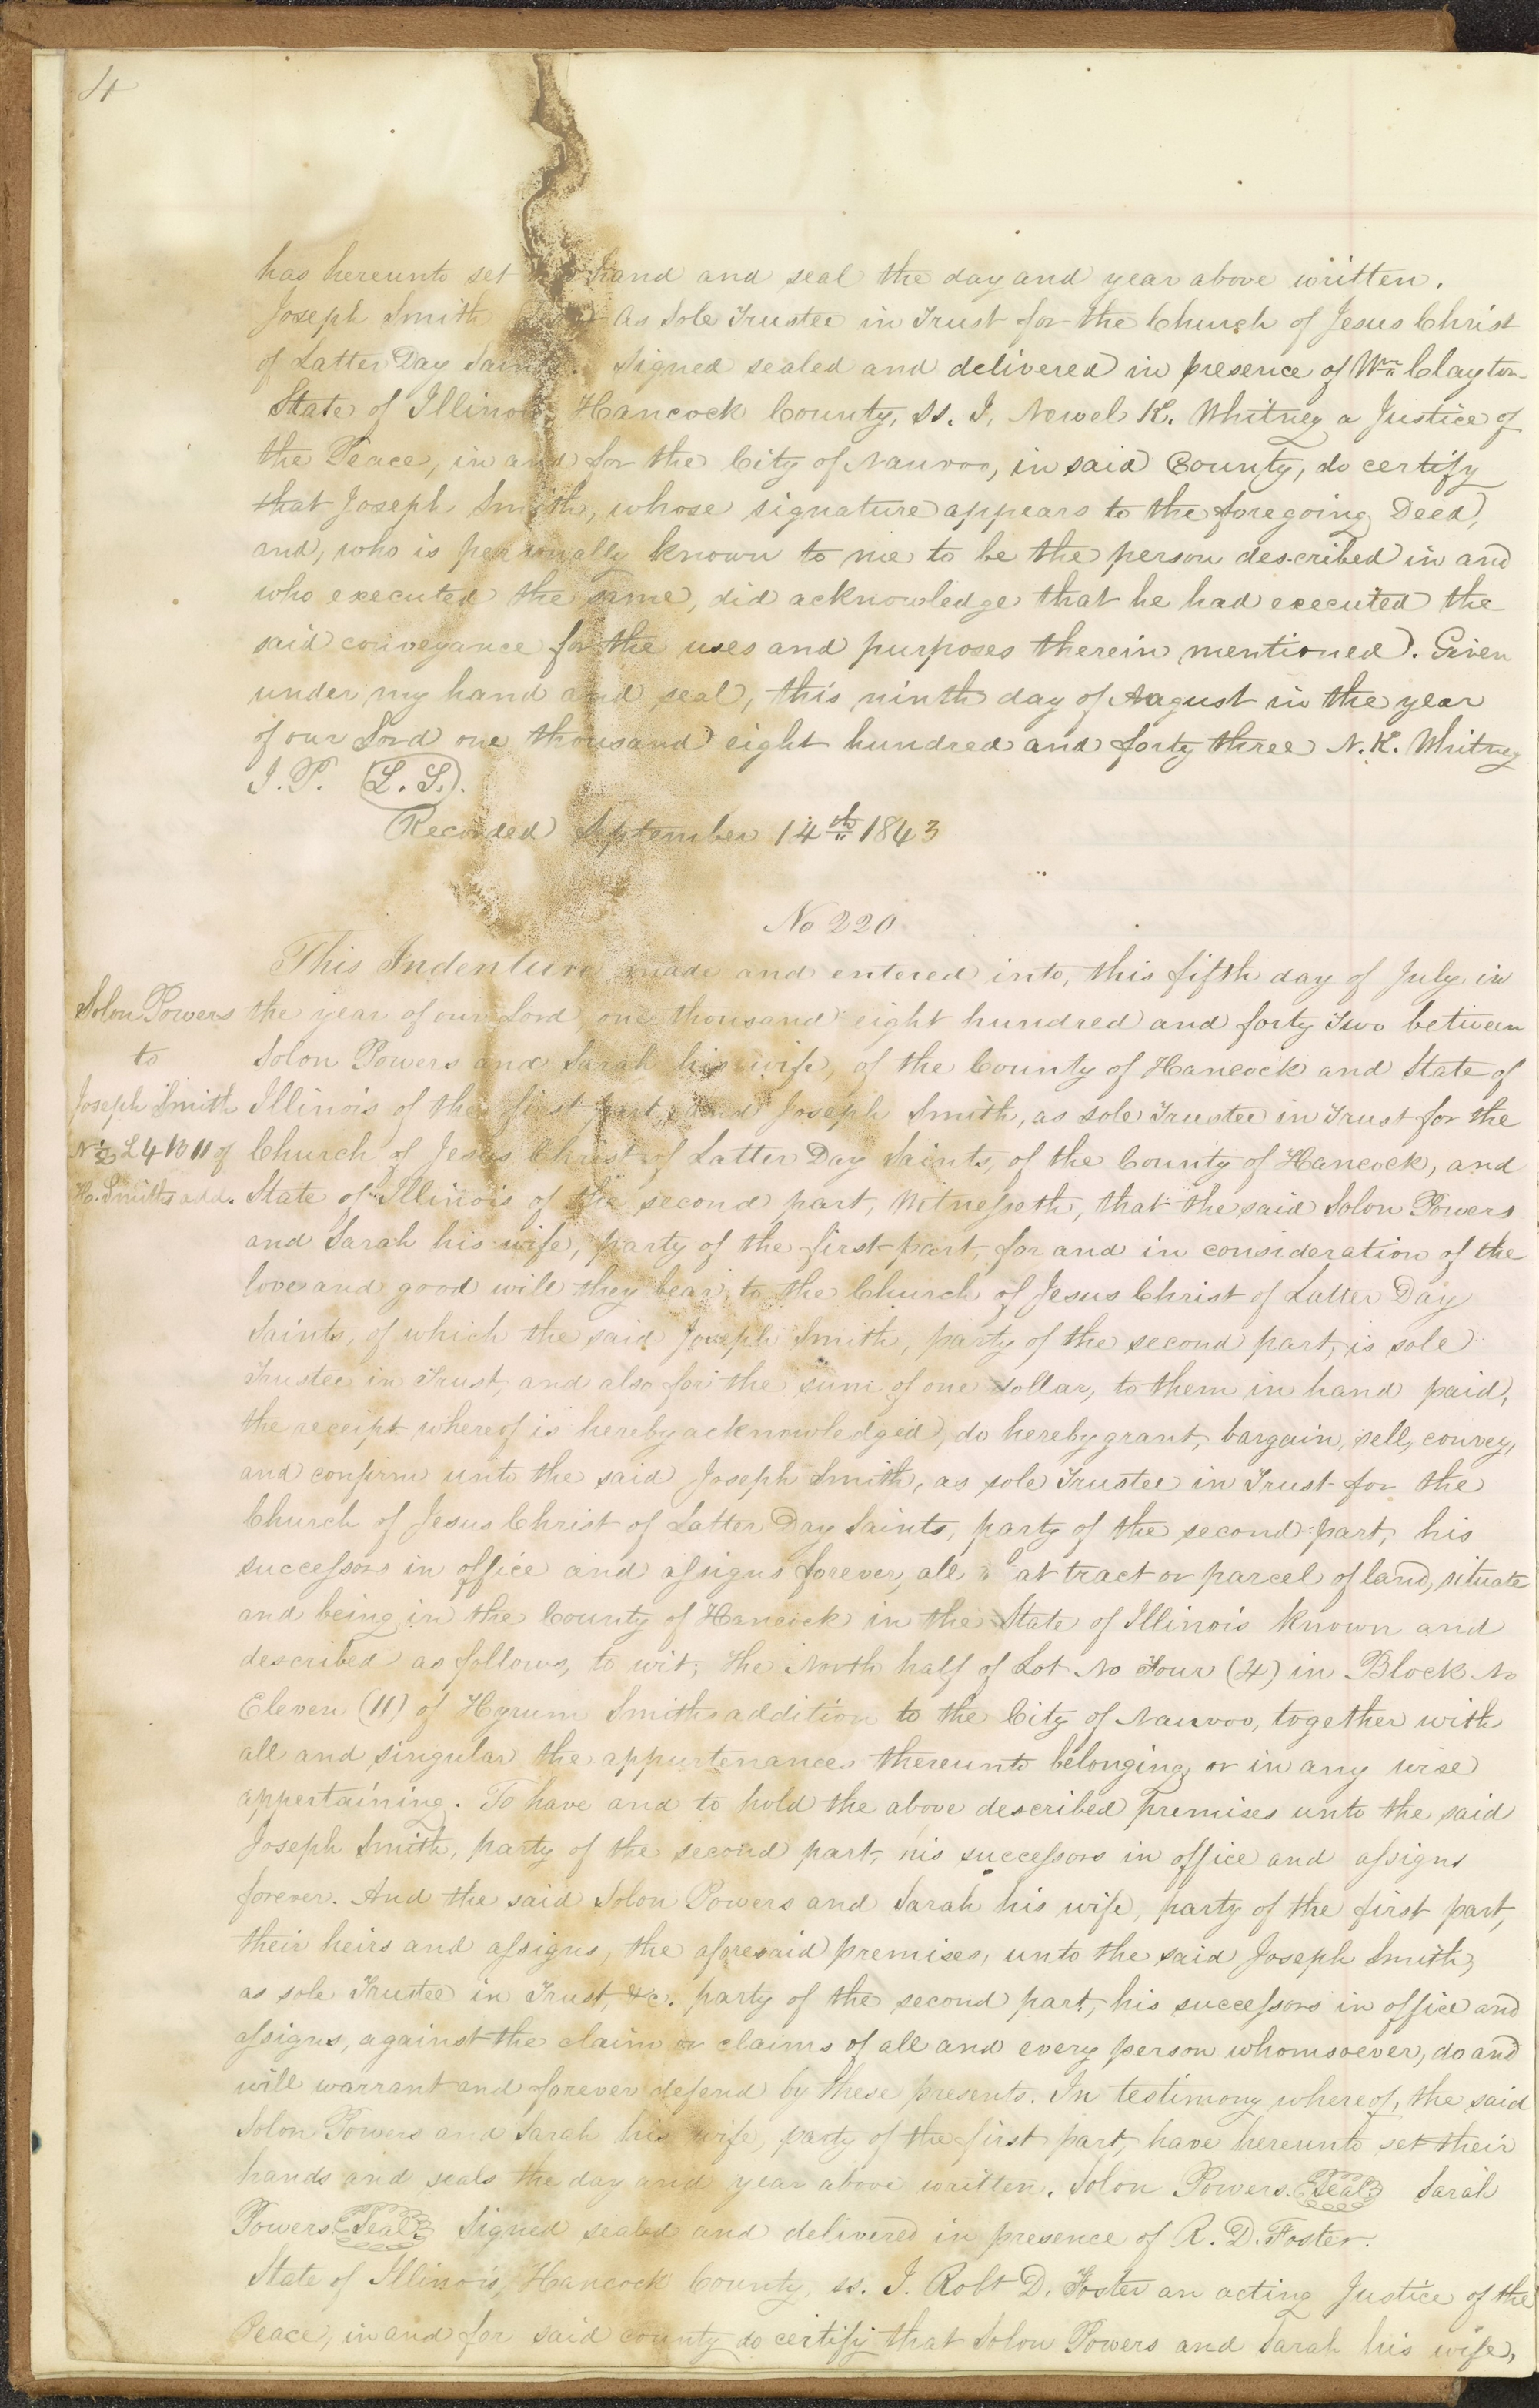 4
has hereunto set his hand and seal the day and year above written.
Joseph Smith As Sole Trustee in Trust for the Church of Jesus Christ
of Latter Day Saints. Signed sealed and delivered in presence of Wm Clayton
State of Illinois Hancock County, ss. I, Newel K. Whitney a Justice of
the Peace, in and for the City of Nauvoo, in said County, do certify
that Joseph Smith, whose signature appears to the foregoing Deed,
and, who is personally known to me to be the person described in and
who executed the same, did acknowledge that he had executed the
said conveyance for the uses and purposes therein mentioned. Given
under my hand and seal, this ninth day of August in the year
of our Lord one thousand eight hundred and forty three N. K. Whitney
J. P. (L. S.).
Recorded September 14th 1843
No 220
This Indenture made and entered into, this fifth day of July in
Solon Powers the year of our Lord one thousand eight hundred and forty Two between
to Solon Powers and Sarah his wife, of the County of Hancock and State of
Joseph Smith Illinois of the first part, and Joseph Smith, as sole Trustee in Trust for the
N ½ L 4 B 11 of Church of Jesus Christ of Latter Day Saints, of the County of Hancock, and
H. Smiths add. State of Illinois of the second part, Witnesseth, that the said Solon Powers
and Sarah his wife, party of the first part, for and in consideration of the
love and good will they bear to the Church of Jesus Christ of Latter Day
Saints, of which the said Joseph Smith, party of the second part, is sole
Trustee in Trust, and also for the sum of one dollar, to them in hand paid,
the receipt whereof is hereby acknowledged, do hereby grant, bargain, sell, convey,
and confirm unto the said Joseph Smith, as sole Trustee in Trust for the
Church of Jesus Christ of Latter Day Saints, party of the second part, his
successors in office and assigns forever, all that tract or parcel of land, situate
and being in the County of Hancock in the State of Illinois known and
described as follows, to wit; The North half of Lot No Four (4) in Block No
Eleven (11) of Hyrum Smiths addition to the City of Nauvoo, together with
all and singular the appurtenances thereunto belonging or in any wise
appertaining. To have and to hold the above described premises unto the said
Joseph Smith, party of the second part, his successors in office and assigns
forever. And the said Solon Powers and Sarah his wife, party of the first part,
their heirs and assigns, the aforesaid premises, unto the said Joseph Smith,
as sole Trustee in Trust, &c. party of the second part, his successors in office and
assigns, against the claim or claims of all and every person whomsoever, do and
will warrant and forever defend by these presents. In testimony whereof, the said
Solon Powers and Sarah his wife, party of the first part, have hereunto set their
hands and seals the day and year above written. Solon Powers. Seal Sarah
Powers. Seal Signed sealed and delivered in presence of R. D. Foster.
State of Illinois, Hancock County, ss. I. Robt D. Foster an acting Justice of the
Peace, in and for said county do certify that Solon Powers and Sarah his wife,